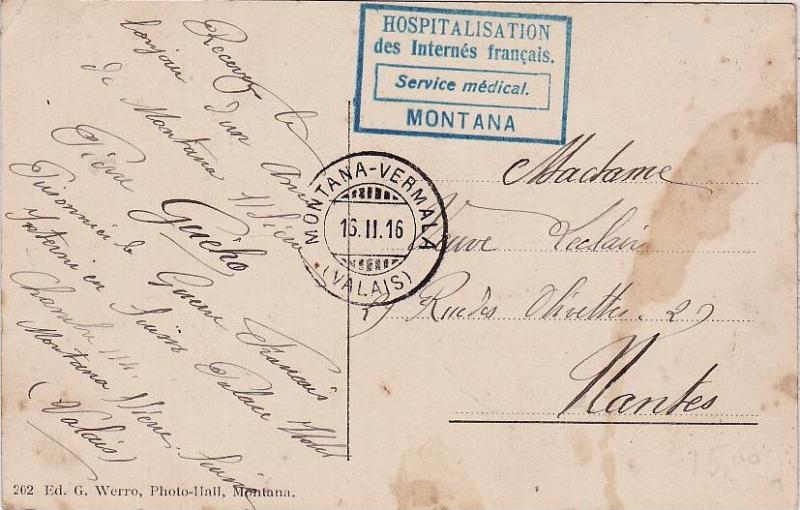 HOSPITALISATION
des Internés français.
Service médical.
MONTANA
MONTANA-VERMALA
16.II.16
(VALAIS)
Recevez le
bonjour d'un ami
de Montana
Guého
Prisonnier de Guerre Français
Interné en Suisse Palace Hotel
Chambre 114.
Montana Suisse
(Valais)
Madame
Veuve Leclair
27 Rue des Olivettes. 27
Nantes
15,00
202 Ed. G. Werro, Photo-Hall, Montana.